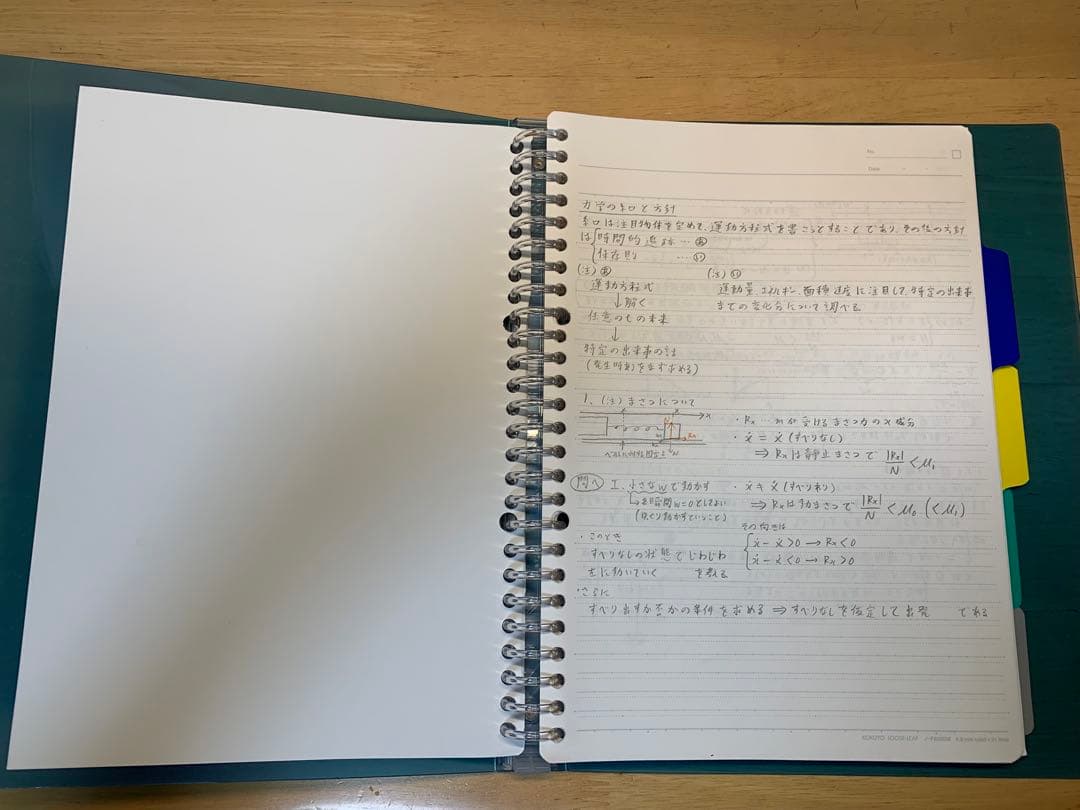 No.
Date
力学のキロと方針
キロは注目物体を定めて、運動方程式を書こうとすることであり、その後の方針
は 時間的追跡 … あ
保存則 … い
(注) あ
運動方程式
↓解く
任意のtの未来
↓
特定の出来事のt
(発生時刻をまず求める)
(注) い
運動量、エネルギー、面積速度に注目して、特定の出来事
までの変化分について調べる
1. (注) まさつについて
x
N
Rx
m
N
・Rx … mが受けるまさつ力のx成分
・ẋ = Ẋ (すべりなし)
⇒ Rxは静止まさつで |Rx|/N < μ₁
問へ I. 小さなwで動かす
→各瞬間w=0としてよい
(ゆっくり動かすということ)
・ẋ ≠ Ẋ (すべりあり)
⇒ Rxは動まさつで |Rx|/N < μ₀ (< μ₁)
その向きは
ẋ - Ẋ > 0 → Rx < 0
ẋ - Ẋ < 0 → Rx > 0
・このとき
すべりなしの状態でじわじわ
左に動いていく を考える
・さらに
すべり出すか否かの条件を求める ⇒ すべりなしを仮定して出発 である
KOKUYO LOOSE-LEAF